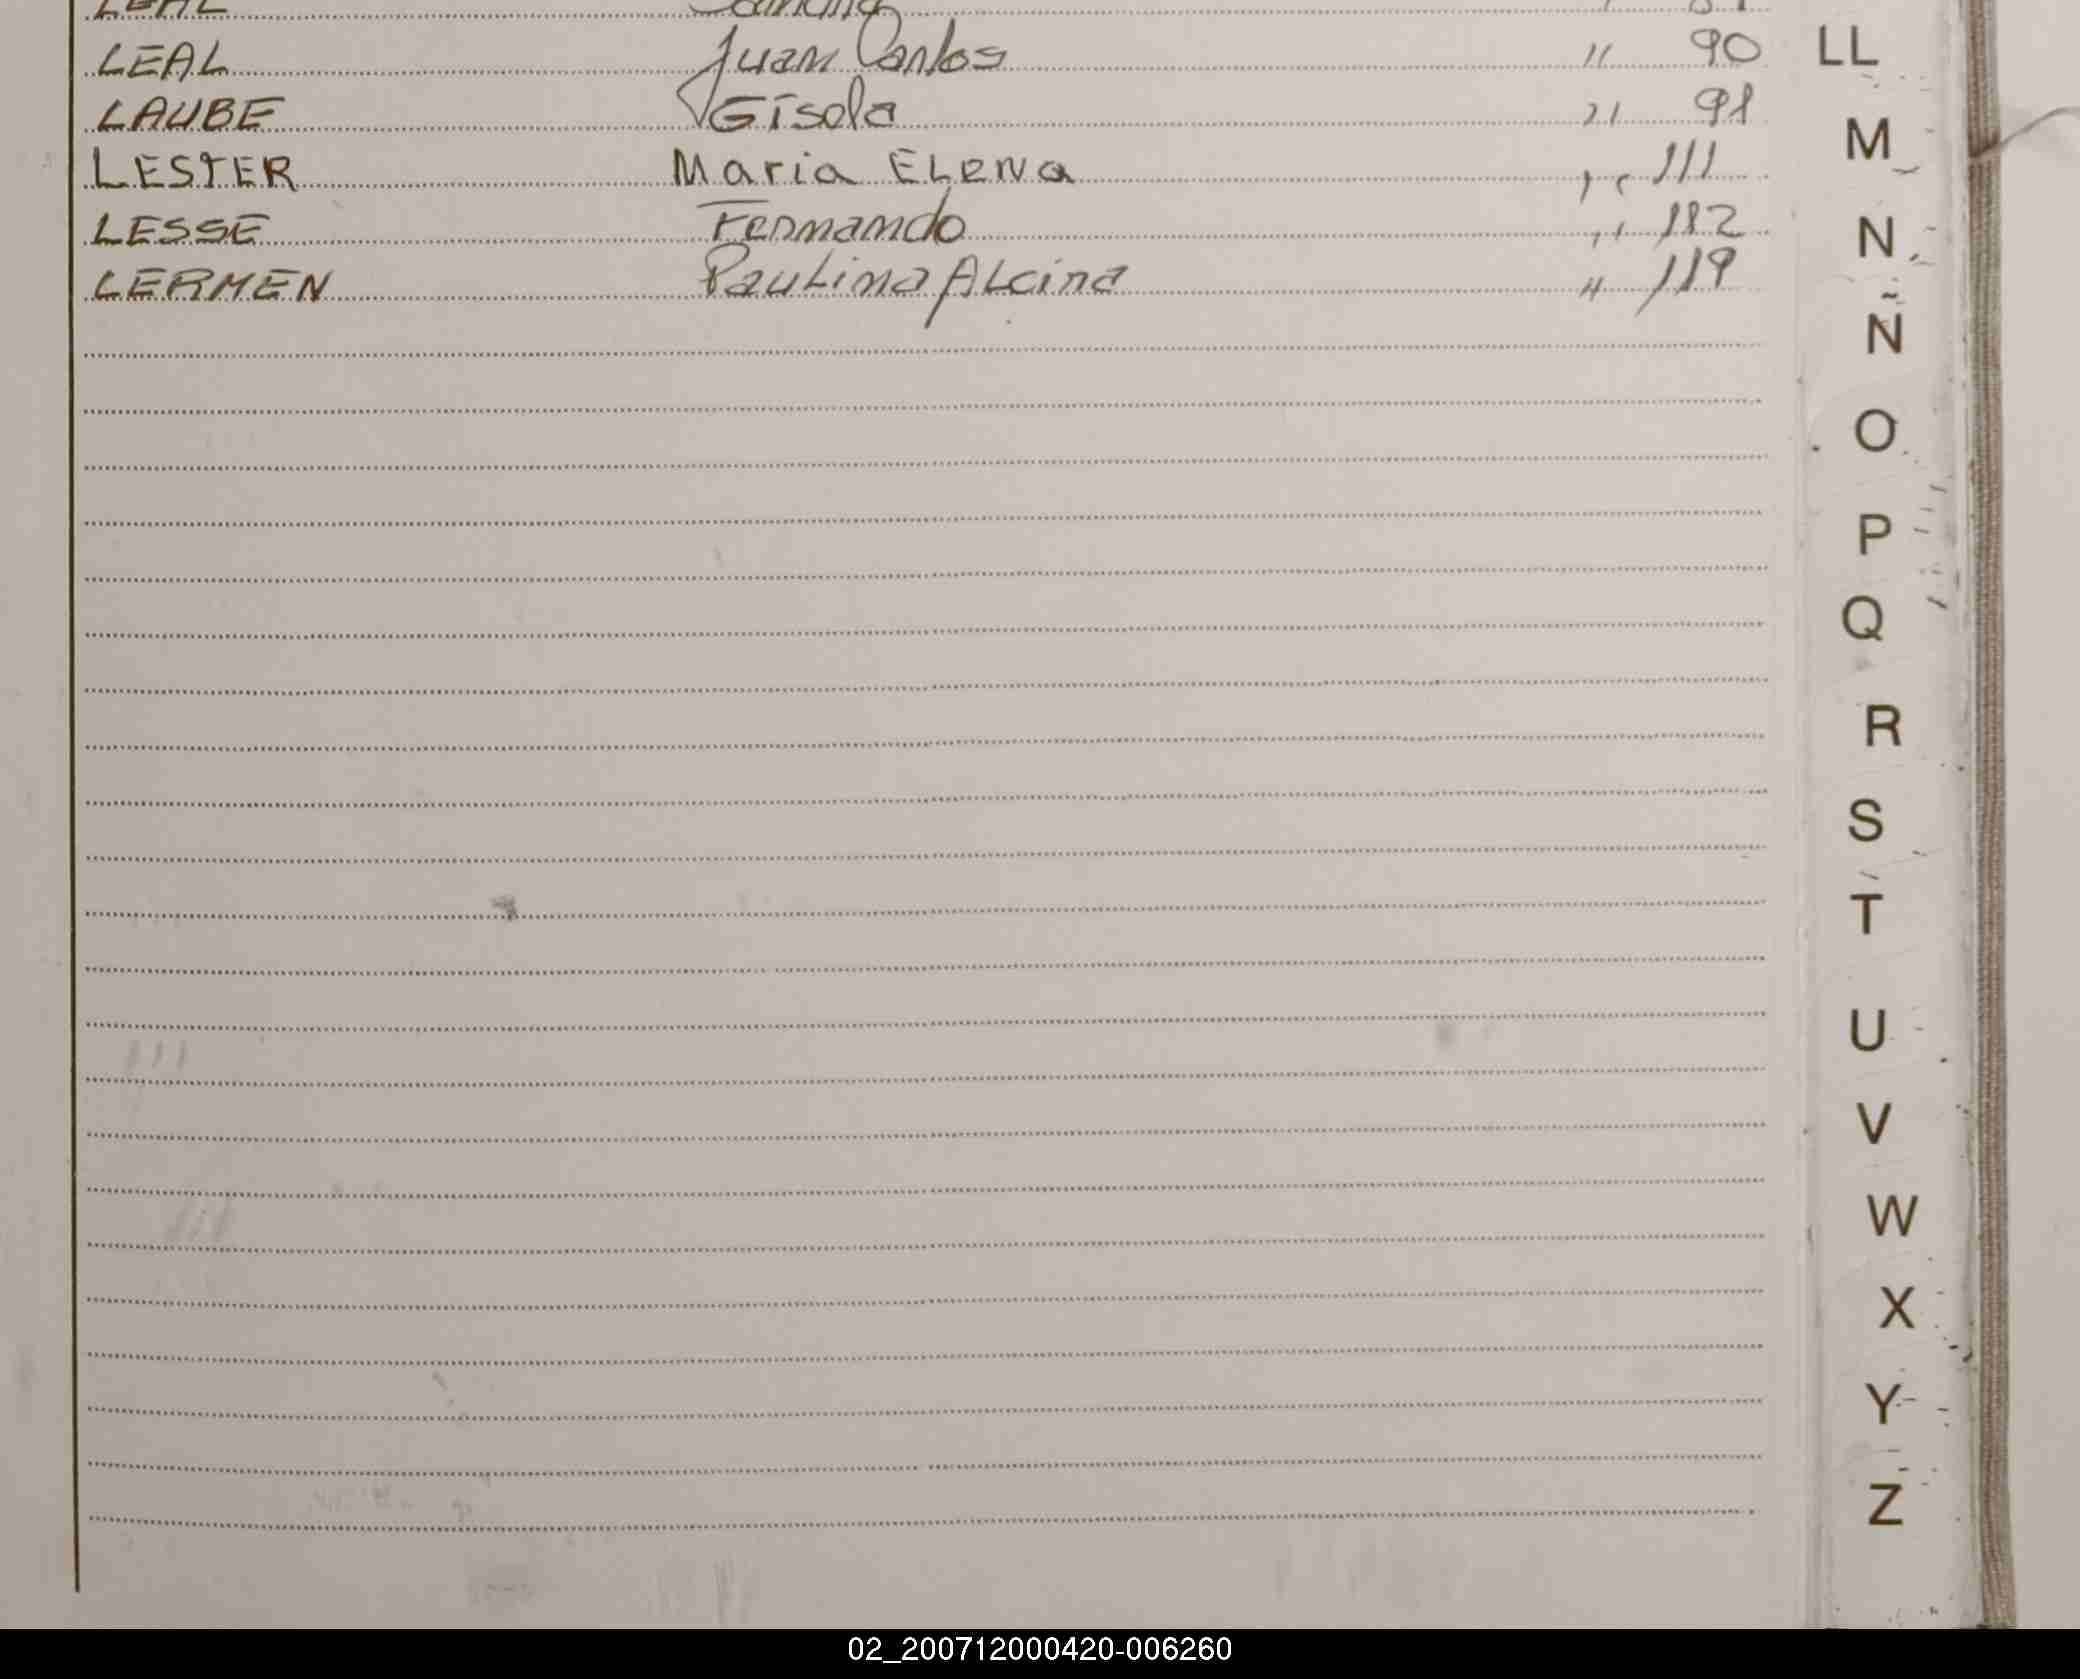 LEAL
LEAL Juan Carlos " 90
LAUBE Gisela " 91
LESTER Maria ELENa " 111
LESSE Fernando " 112
LERMEN PauLina ALcira " 119
LL
M
N
Ñ
O
P
Q
R
S
T
U
V
W
X
Y
Z
02_200712000420-006260